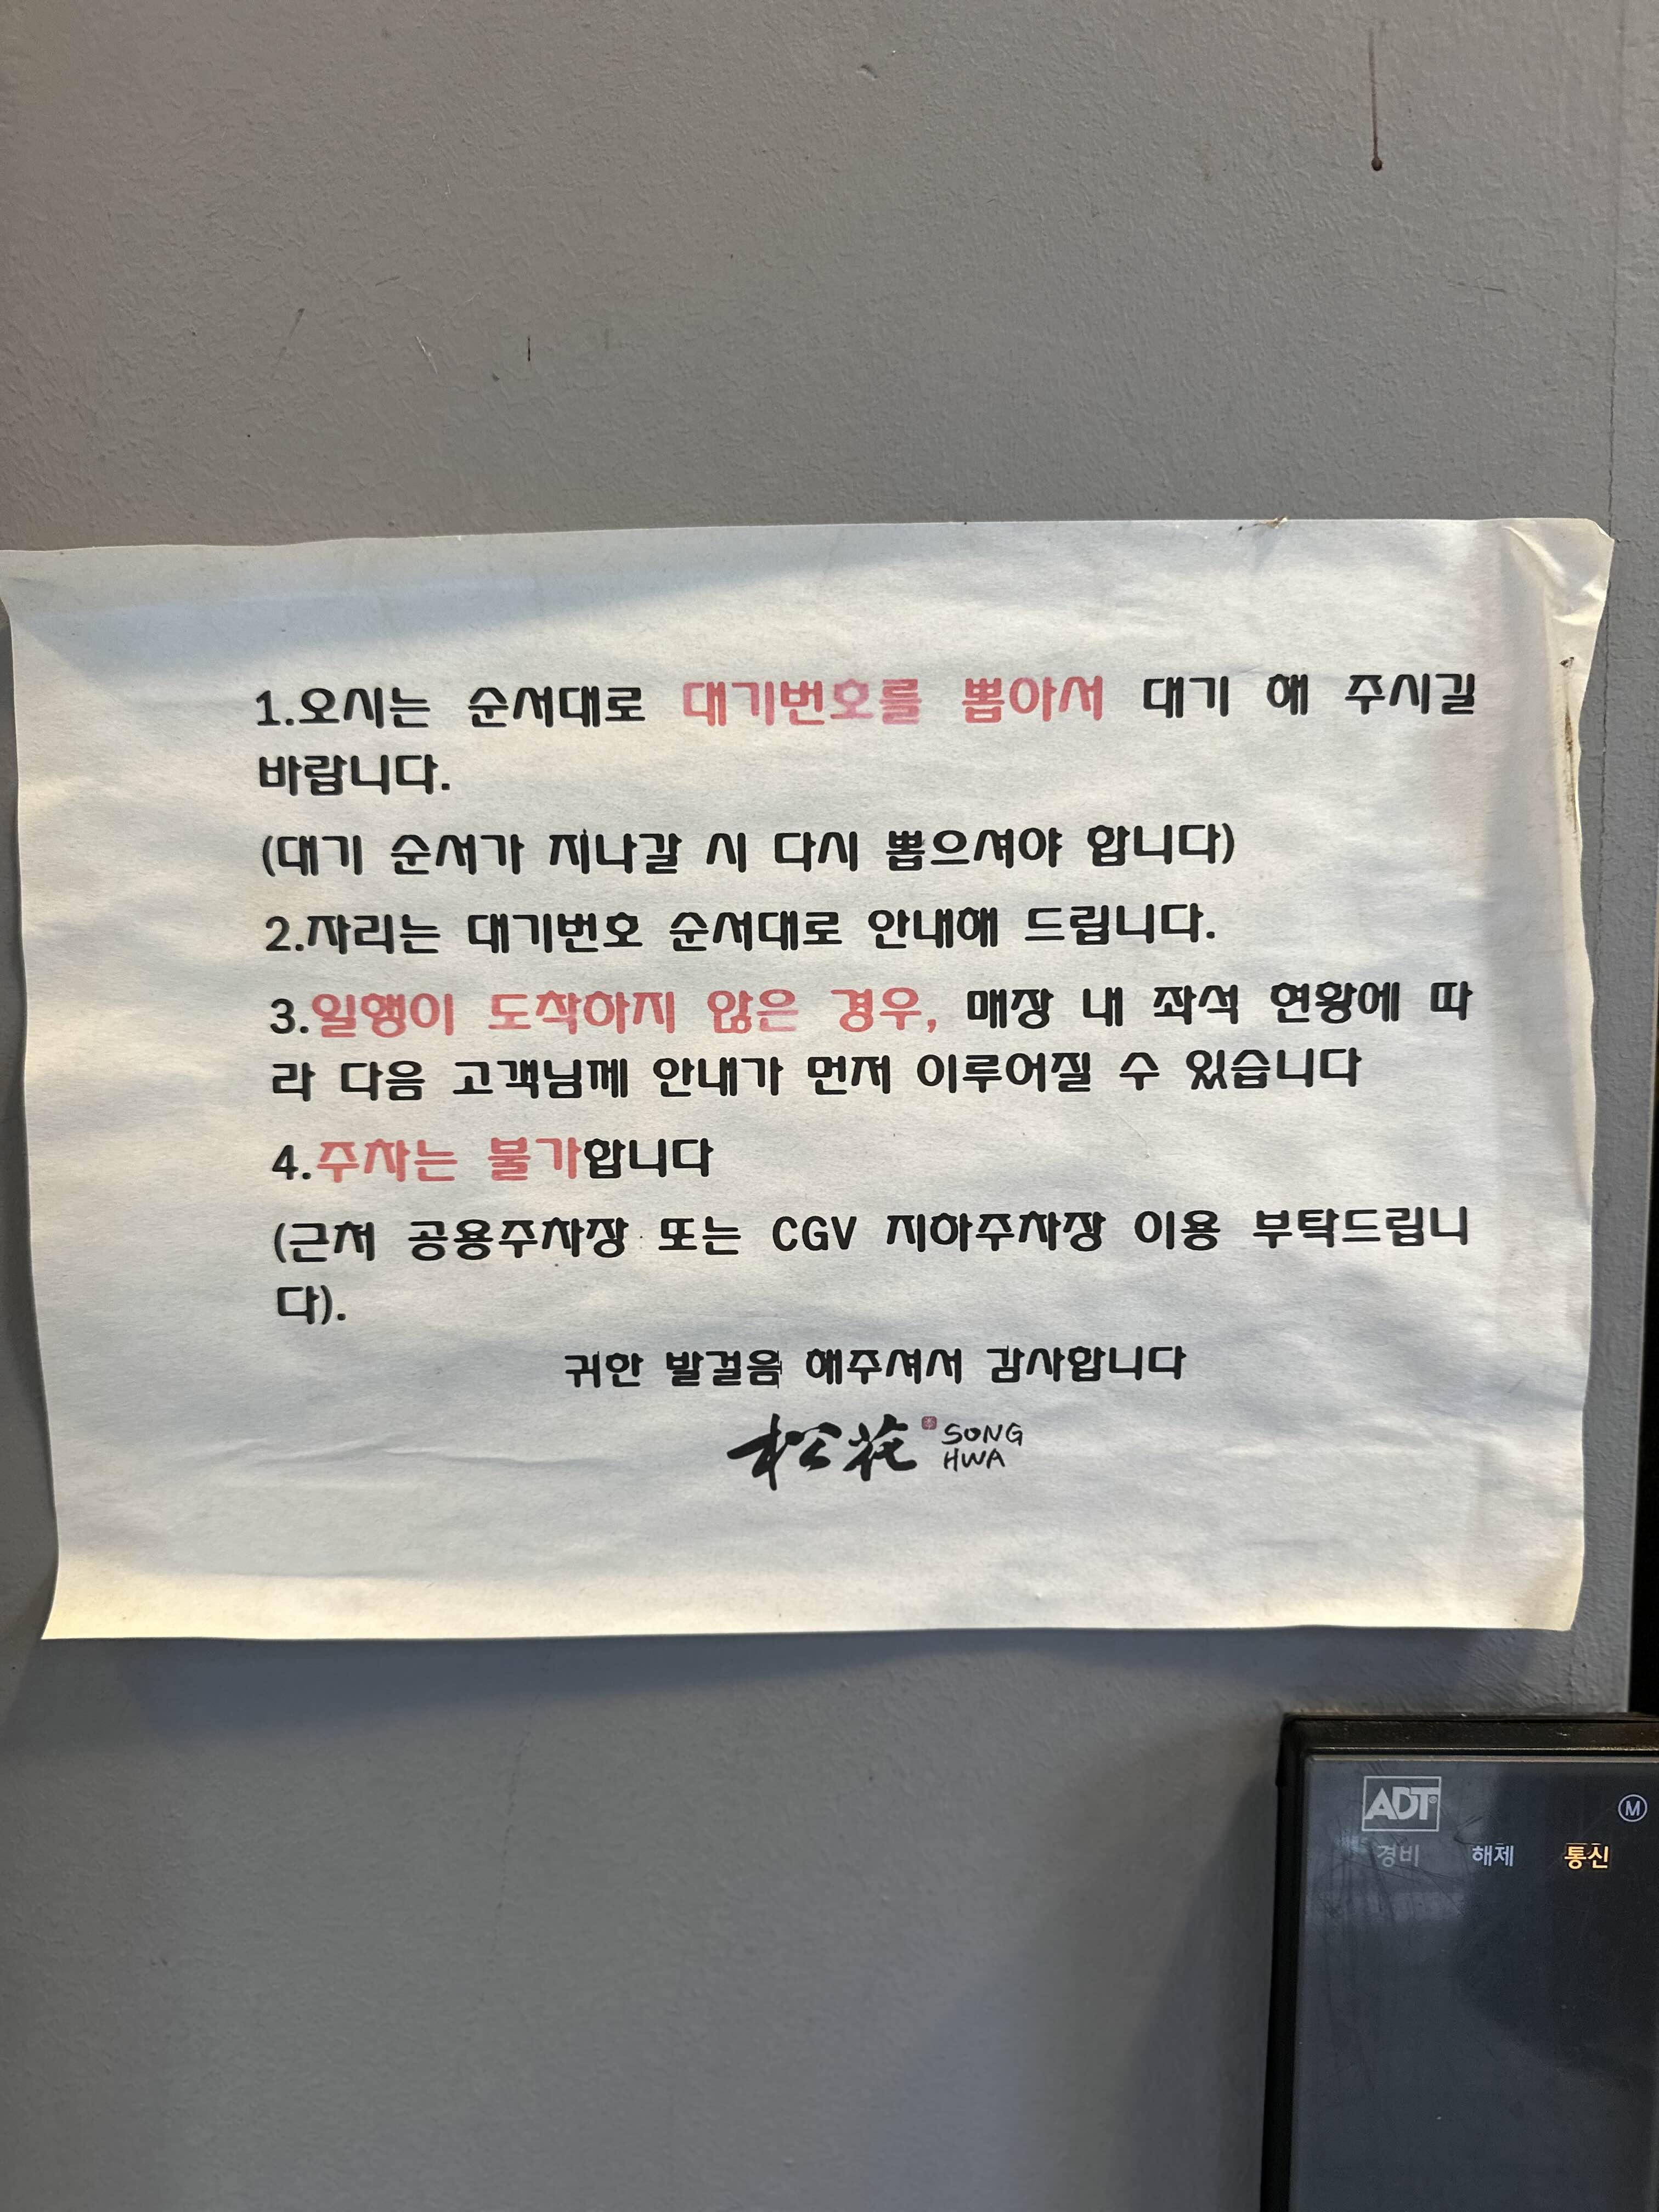 1.오시는 순서대로 대기번호를 뽑아서 대기 해 주시길
바랍니다.
(대기 순서가 지나갈 시 다시 뽑으셔야 합니다)
2.자리는 대기번호 순서대로 안내해 드립니다.
3.일행이 도착하지 않은 경우, 매장 내 좌석 현황에 따
라 다음 고객님께 안내가 먼저 이루어질 수 있습니다
4.주차는 불가합니다
(근처 공용주차장 또는 CGV 지하주차장 이용 부탁드립니
다).
귀한 발걸음 해주셔서 감사합니다
松花 SONG
HWA
ADT M
경비 해제 통신